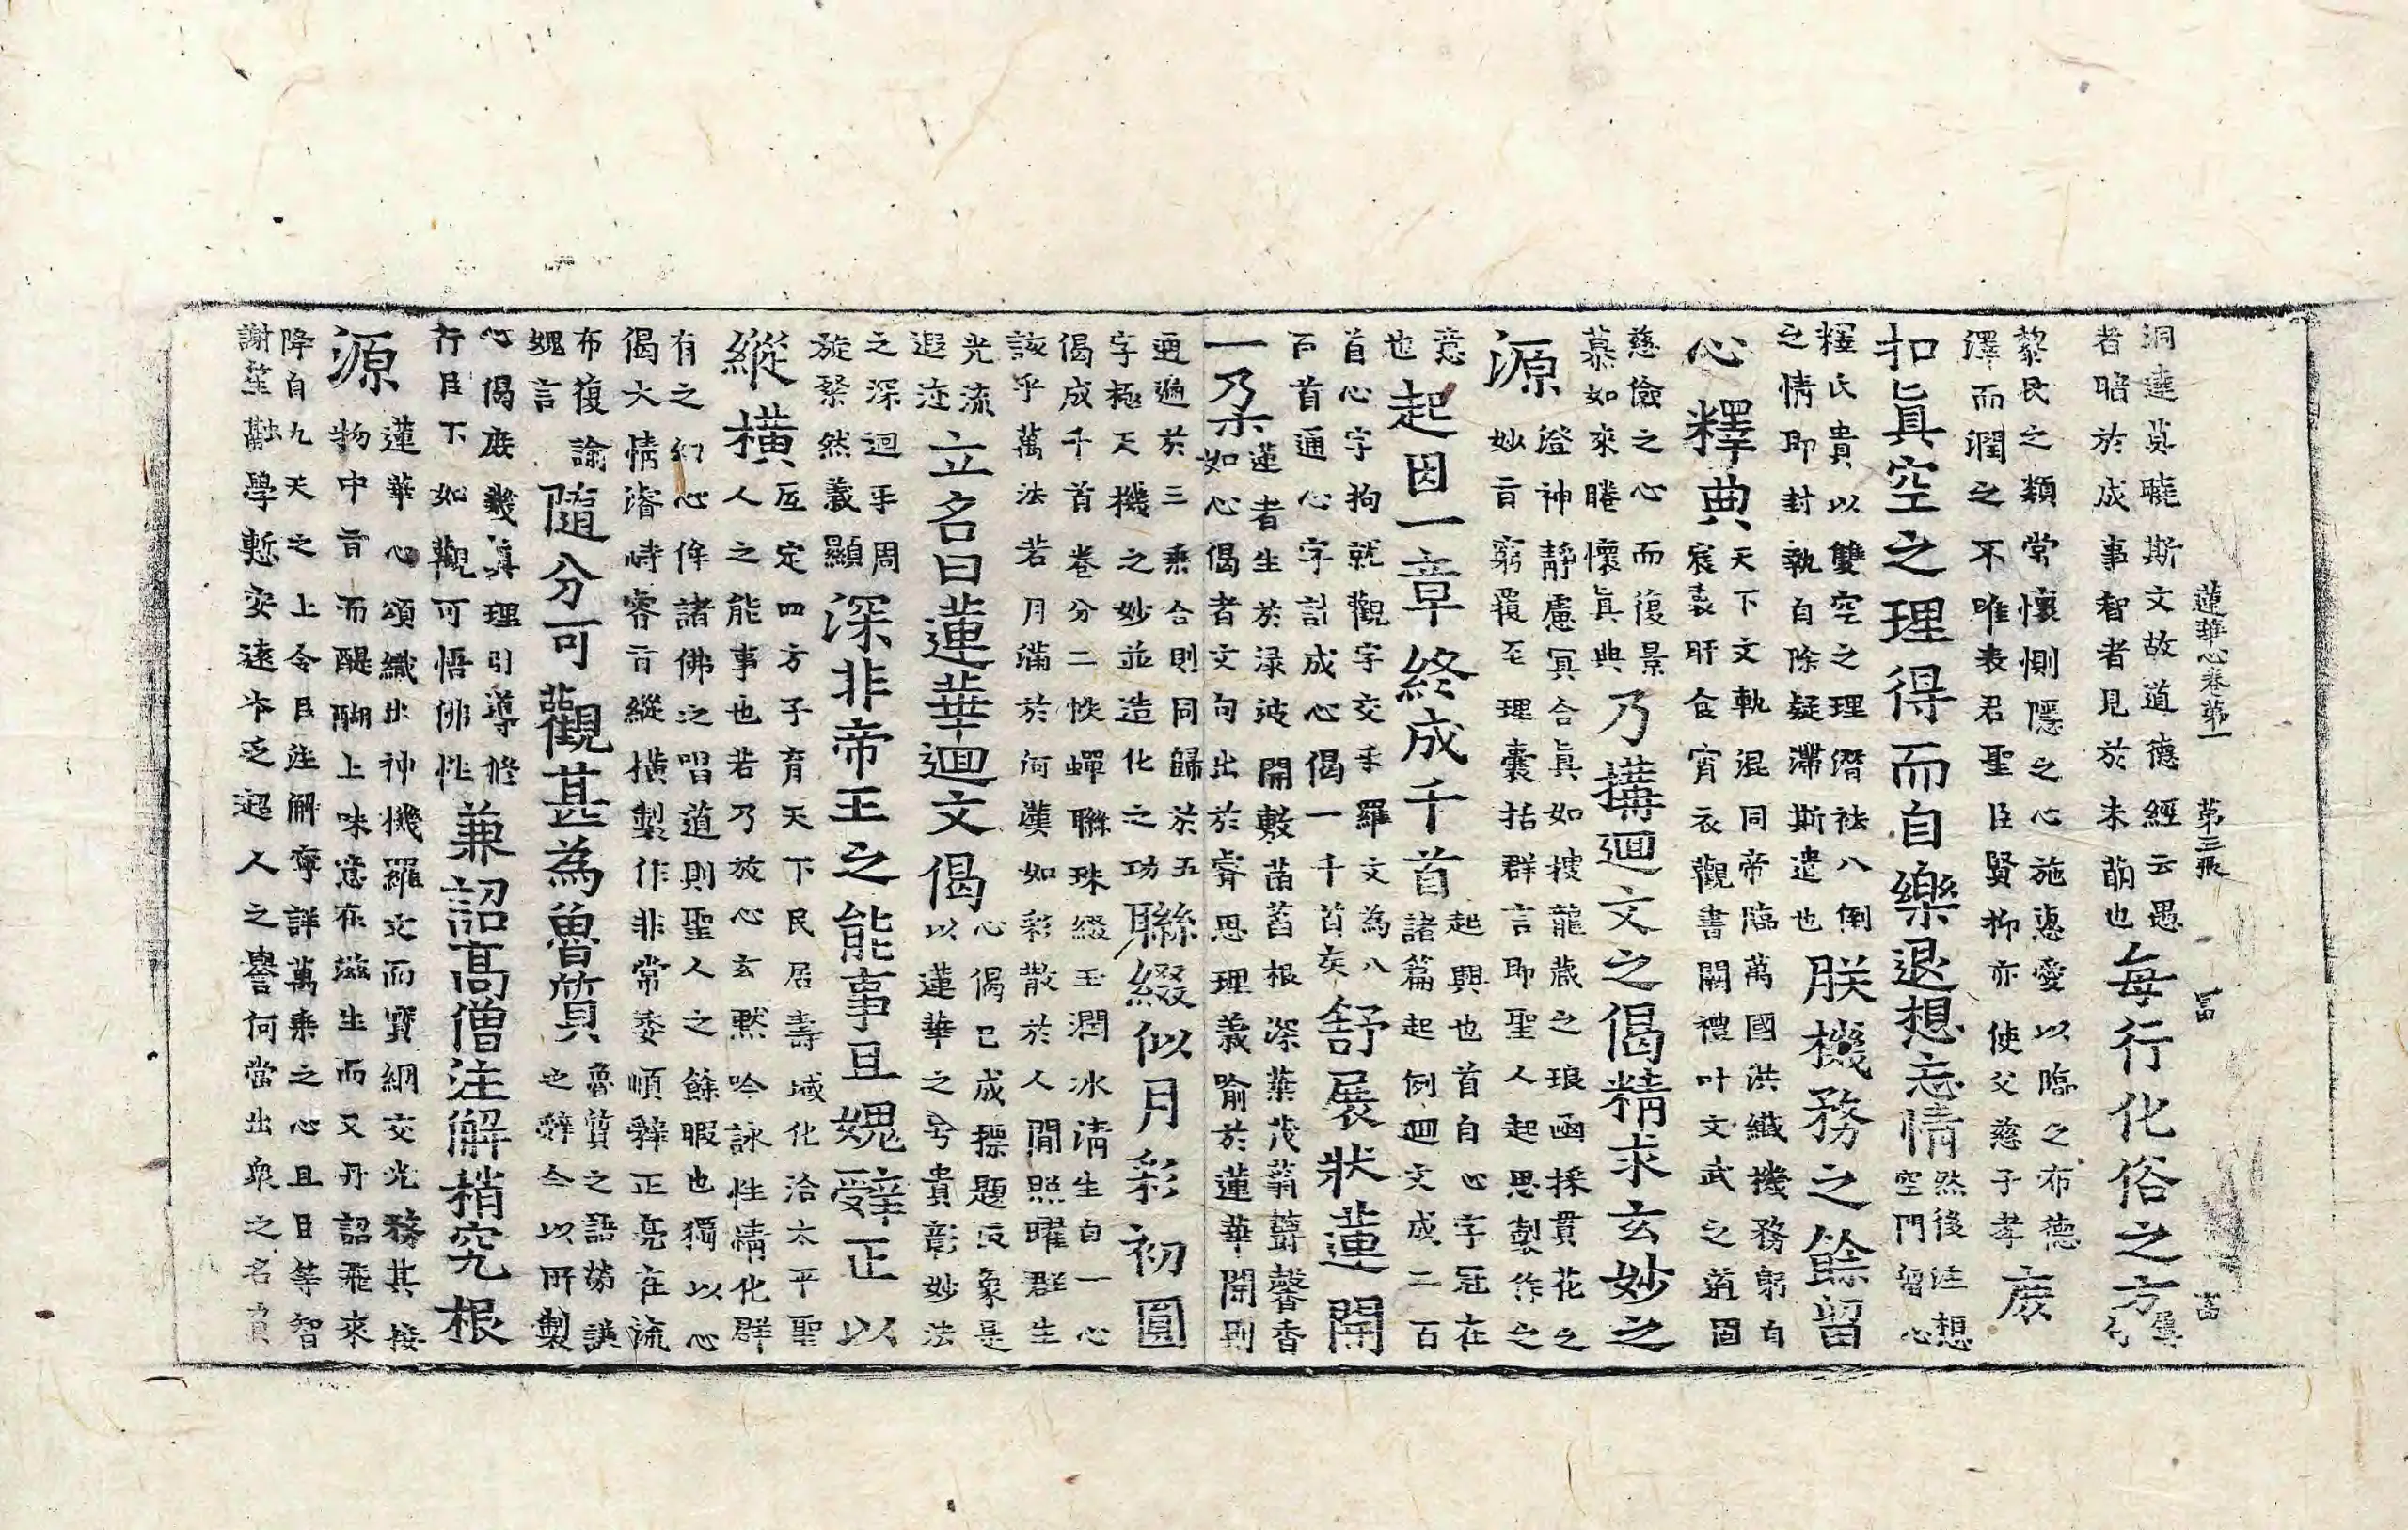 蓮華心卷第一 第三張 富 富
洞達莫曉斯文故道德經云愚
者暗於成事智者見於未萌也每行化俗之方
黎民之類常懷惻隱之心施惠愛以臨之布德
澤而潤之不唯表君聖臣賢抑亦使父慈子孝庶
扣眞空之理得而自樂退想忘情然後注想
空門留心
釋氏貴以雙空之理潛袪八倒
之情即封執自除疑滯斯遣也朕機務之餘留
心釋典天下文軌混同帝臨萬國洪纖機務躬自
宸衷旰食宵衣觀書闡禮叶文武之道固
慈儉之心而復景
慕如來睠懷眞典乃搆迴文之偈精求玄妙之
源澄神靜慮冥合眞如搜龍藏之琅函採貫花之
妙旨窮覆至理囊括群言即聖人起思製作之
意
也起因一章終成千首起興也首自心字冠在
諸篇起例迴文成二百
首心字拘就觀字交手羅文為八
百首通心字計成心偈一千首矣舒展狀蓮開
一朵蓮者生於淥波開敷菡萏根深葉茂蓊蔚馨香
如心偈者文句出於睿思理義喻於蓮華開則
迺遍於三乘合則同歸於五
字極天機之妙並造化之功聯綴似月彩初圓
偈成千首卷分二帙蟬聯珠綴玉潤冰清生自一心
該乎萬法若月滿於河漢如彩散於人間照曜群生
光流
遐迩立名曰蓮華迴文偈心偈已成摽题反象是
以蓮華之号貴彰妙法
之深迴乎周
旋繁然義顯深非帝王之能事且媿辭正以
縱橫互定四方子育天下民居壽域化洽太平聖
人之能事也若乃放心玄默吟詠性情化群
有之幻心倅諸佛之唱道則聖人之餘暇也獨以心
偈大情濬時睿旨縱橫製作非常委順辭正亮在流
布復諭
媿言隨分可觀甚為魯質魯質之語勞謙
之辭今以所製
心偈庶幾眞理引導修
行臣下如觀可悟佛性兼詔高僧注解稍究根
源蓮華心頌織出神機羅文而寶網交光務其接
物中旨而醍醐上味意在滋生而又丹詔飛來
降自九天之上令臣注解奪詳萬乘之心且臣等智
謝莖勸學慙安遠岑乏超人之譽何當出衆之名